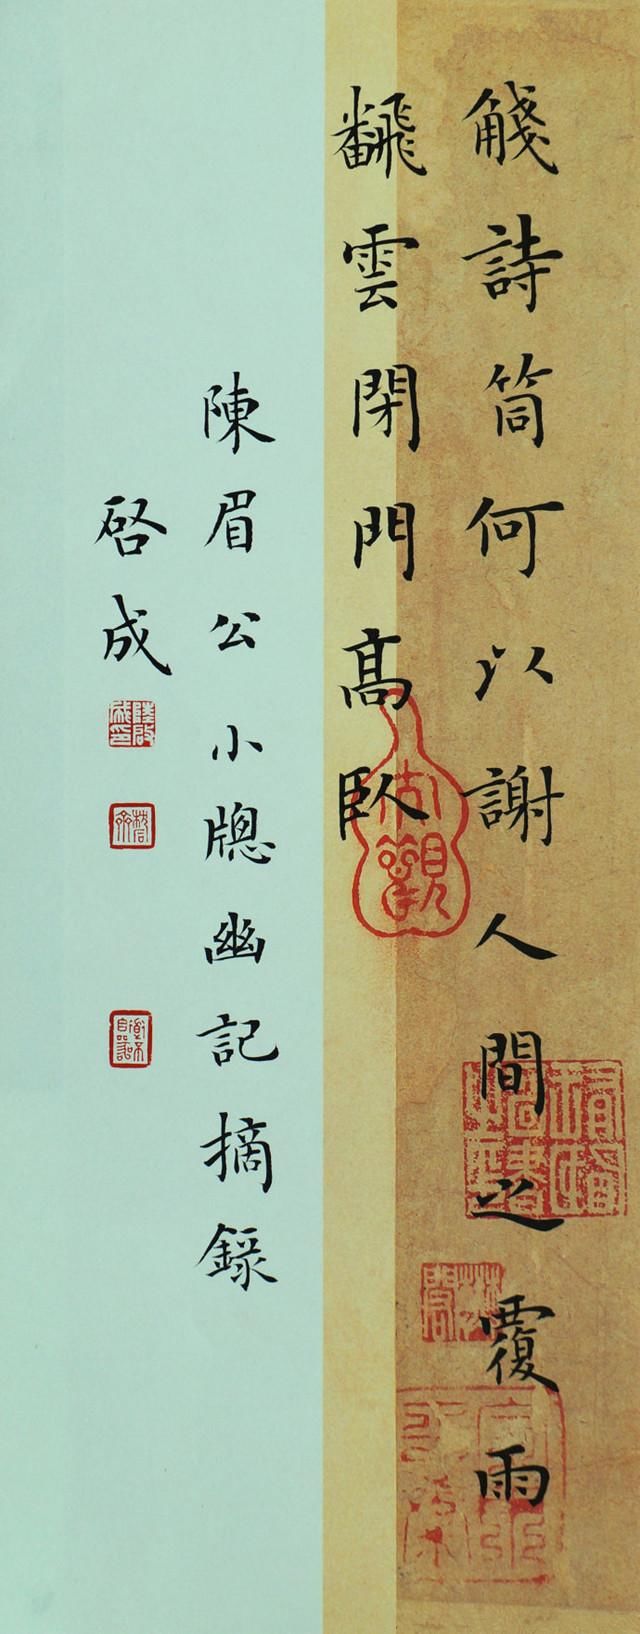 詩筒何以謝人間之覆雨
飜雲閉門髙臥
陳眉公小牕幽記摘錄
啓成